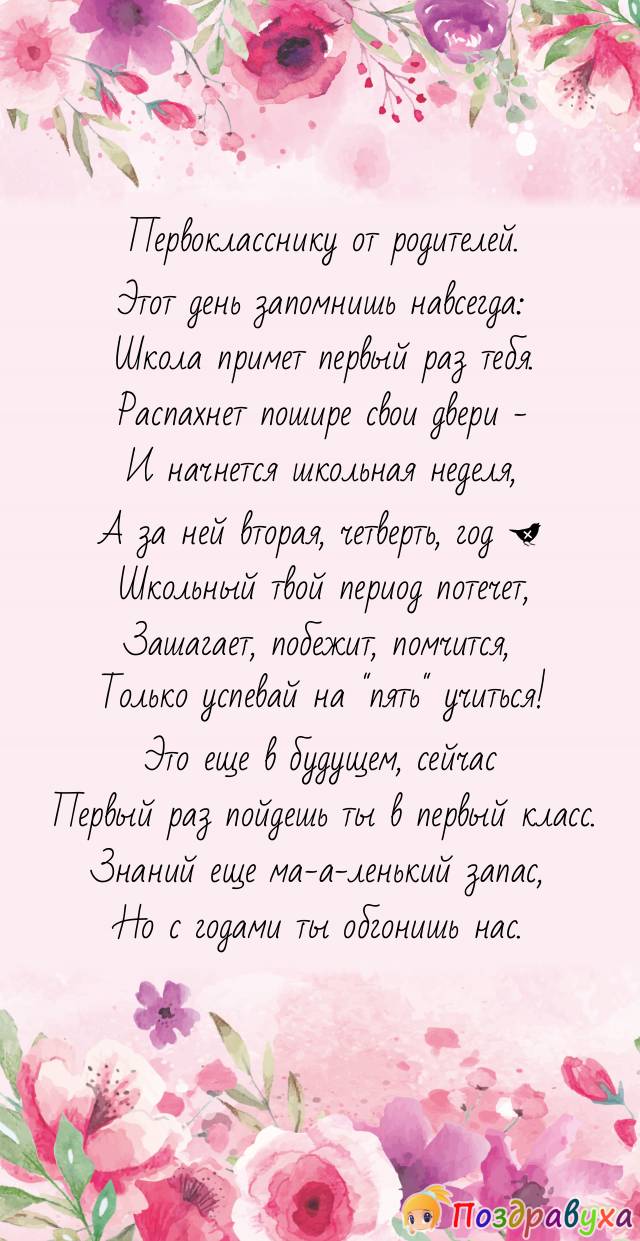 Первокласснику от родителей.
Этот день запомнишь навсегда:
Школа примет первый раз тебя.
Распахнет пошире свои двери -
И начнется школьная неделя,
А за ней вторая, четверть, год
Школьный твой период потечет,
Зашагает, побежит, помчится,
Только успевай на "пять" учиться!
Это еще в будущем, сейчас
Первый раз пойдешь ты в первый класс.
Знаний еще ма-а-ленький запас,
Но с годами ты обгонишь нас.
Поздравуха